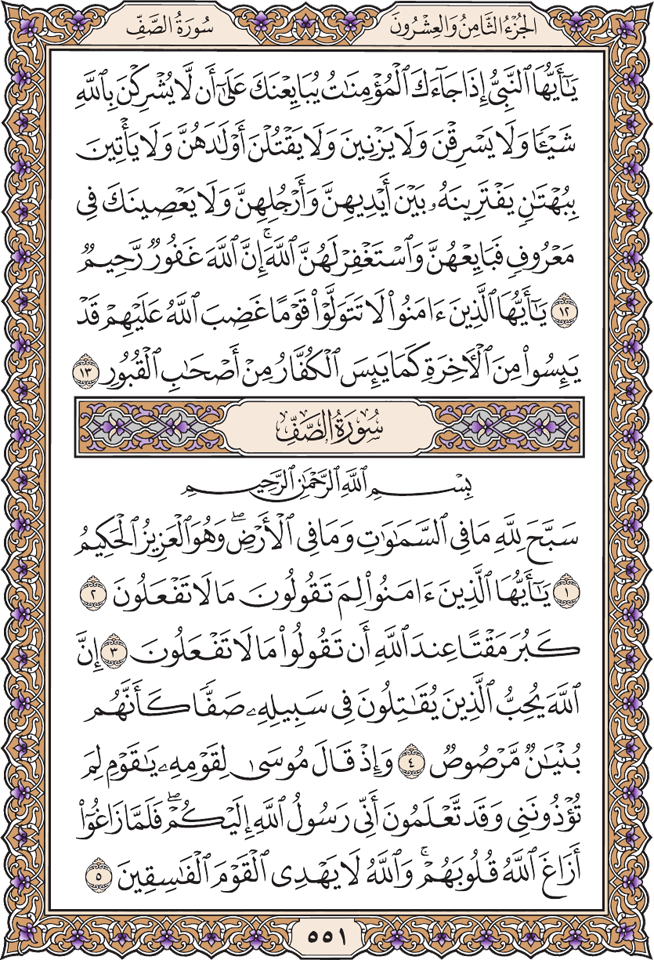 الجُزْءُ الثَّامِنُ وَالعِشْرُونَ
سُورَةُ الصَّفِّ
يَٰٓأَيُّهَا ٱلنَّبِيُّ إِذَا جَآءَكَ ٱلْمُؤْمِنَٰتُ يُبَايِعْنَكَ عَلَىٰٓ أَن لَّا يُشْرِكْنَ بِٱللَّهِ
شَيْـًٔا وَلَا يَسْرِقْنَ وَلَا يَزْنِينَ وَلَا يَقْتُلْنَ أَوْلَٰدَهُنَّ وَلَا يَأْتِينَ
بِبُهْتَٰنٍ يَفْتَرِينَهُۥ بَيْنَ أَيْدِيهِنَّ وَأَرْجُلِهِنَّ وَلَا يَعْصِينَكَ فِى
مَعْرُوفٍ فَبَايِعْهُنَّ وَٱسْتَغْفِرْ لَهُنَّ ٱللَّهَۚ إِنَّ ٱللَّهَ غَفُورٌ رَّحِيمٌ
١٢ يَٰٓأَيُّهَا ٱلَّذِينَ ءَامَنُوا۟ لَا تَتَوَلَّوْا۟ قَوْمًا غَضِبَ ٱللَّهُ عَلَيْهِمْ قَدْ
يَئِسُوا۟ مِنَ ٱلْـَٔاخِرَةِ كَمَا يَئِسَ ٱلْكُفَّارُ مِنْ أَصْحَٰبِ ٱلْقُبُورِ ١٣
سُورَةُ الصَّفِّ
بِسْمِ ٱللَّهِ ٱلرَّحْمَٰنِ ٱلرَّحِيمِ
سَبَّحَ لِلَّهِ مَا فِى ٱلسَّمَٰوَٰتِ وَمَا فِى ٱلْأَرْضِۖ وَهُوَ ٱلْعَزِيزُ ٱلْحَكِيمُ
١ يَٰٓأَيُّهَا ٱلَّذِينَ ءَامَنُوا۟ لِمَ تَقُولُونَ مَا لَا تَفْعَلُونَ ٢
كَبُرَ مَقْتًا عِندَ ٱللَّهِ أَن تَقُولُوا۟ مَا لَا تَفْعَلُونَ ٣ إِنَّ
ٱللَّهَ يُحِبُّ ٱلَّذِينَ يُقَٰتِلُونَ فِى سَبِيلِهِۦ صَفًّا كَأَنَّهُم
بُنْيَٰنٌ مَّرْصُوصٌ ٤ وَإِذْ قَالَ مُوسَىٰ لِقَوْمِهِۦ يَٰقَوْمِ لِمَ
تُؤْذُونَنِى وَقَد تَّعْلَمُونَ أَنِّى رَسُولُ ٱللَّهِ إِلَيْكُمْۖ فَلَمَّا زَاغُوٓا۟
أَزَاغَ ٱللَّهُ قُلُوبَهُمْۚ وَٱللَّهُ لَا يَهْدِى ٱلْقَوْمَ ٱلْفَٰسِقِينَ ٥
٥٥١